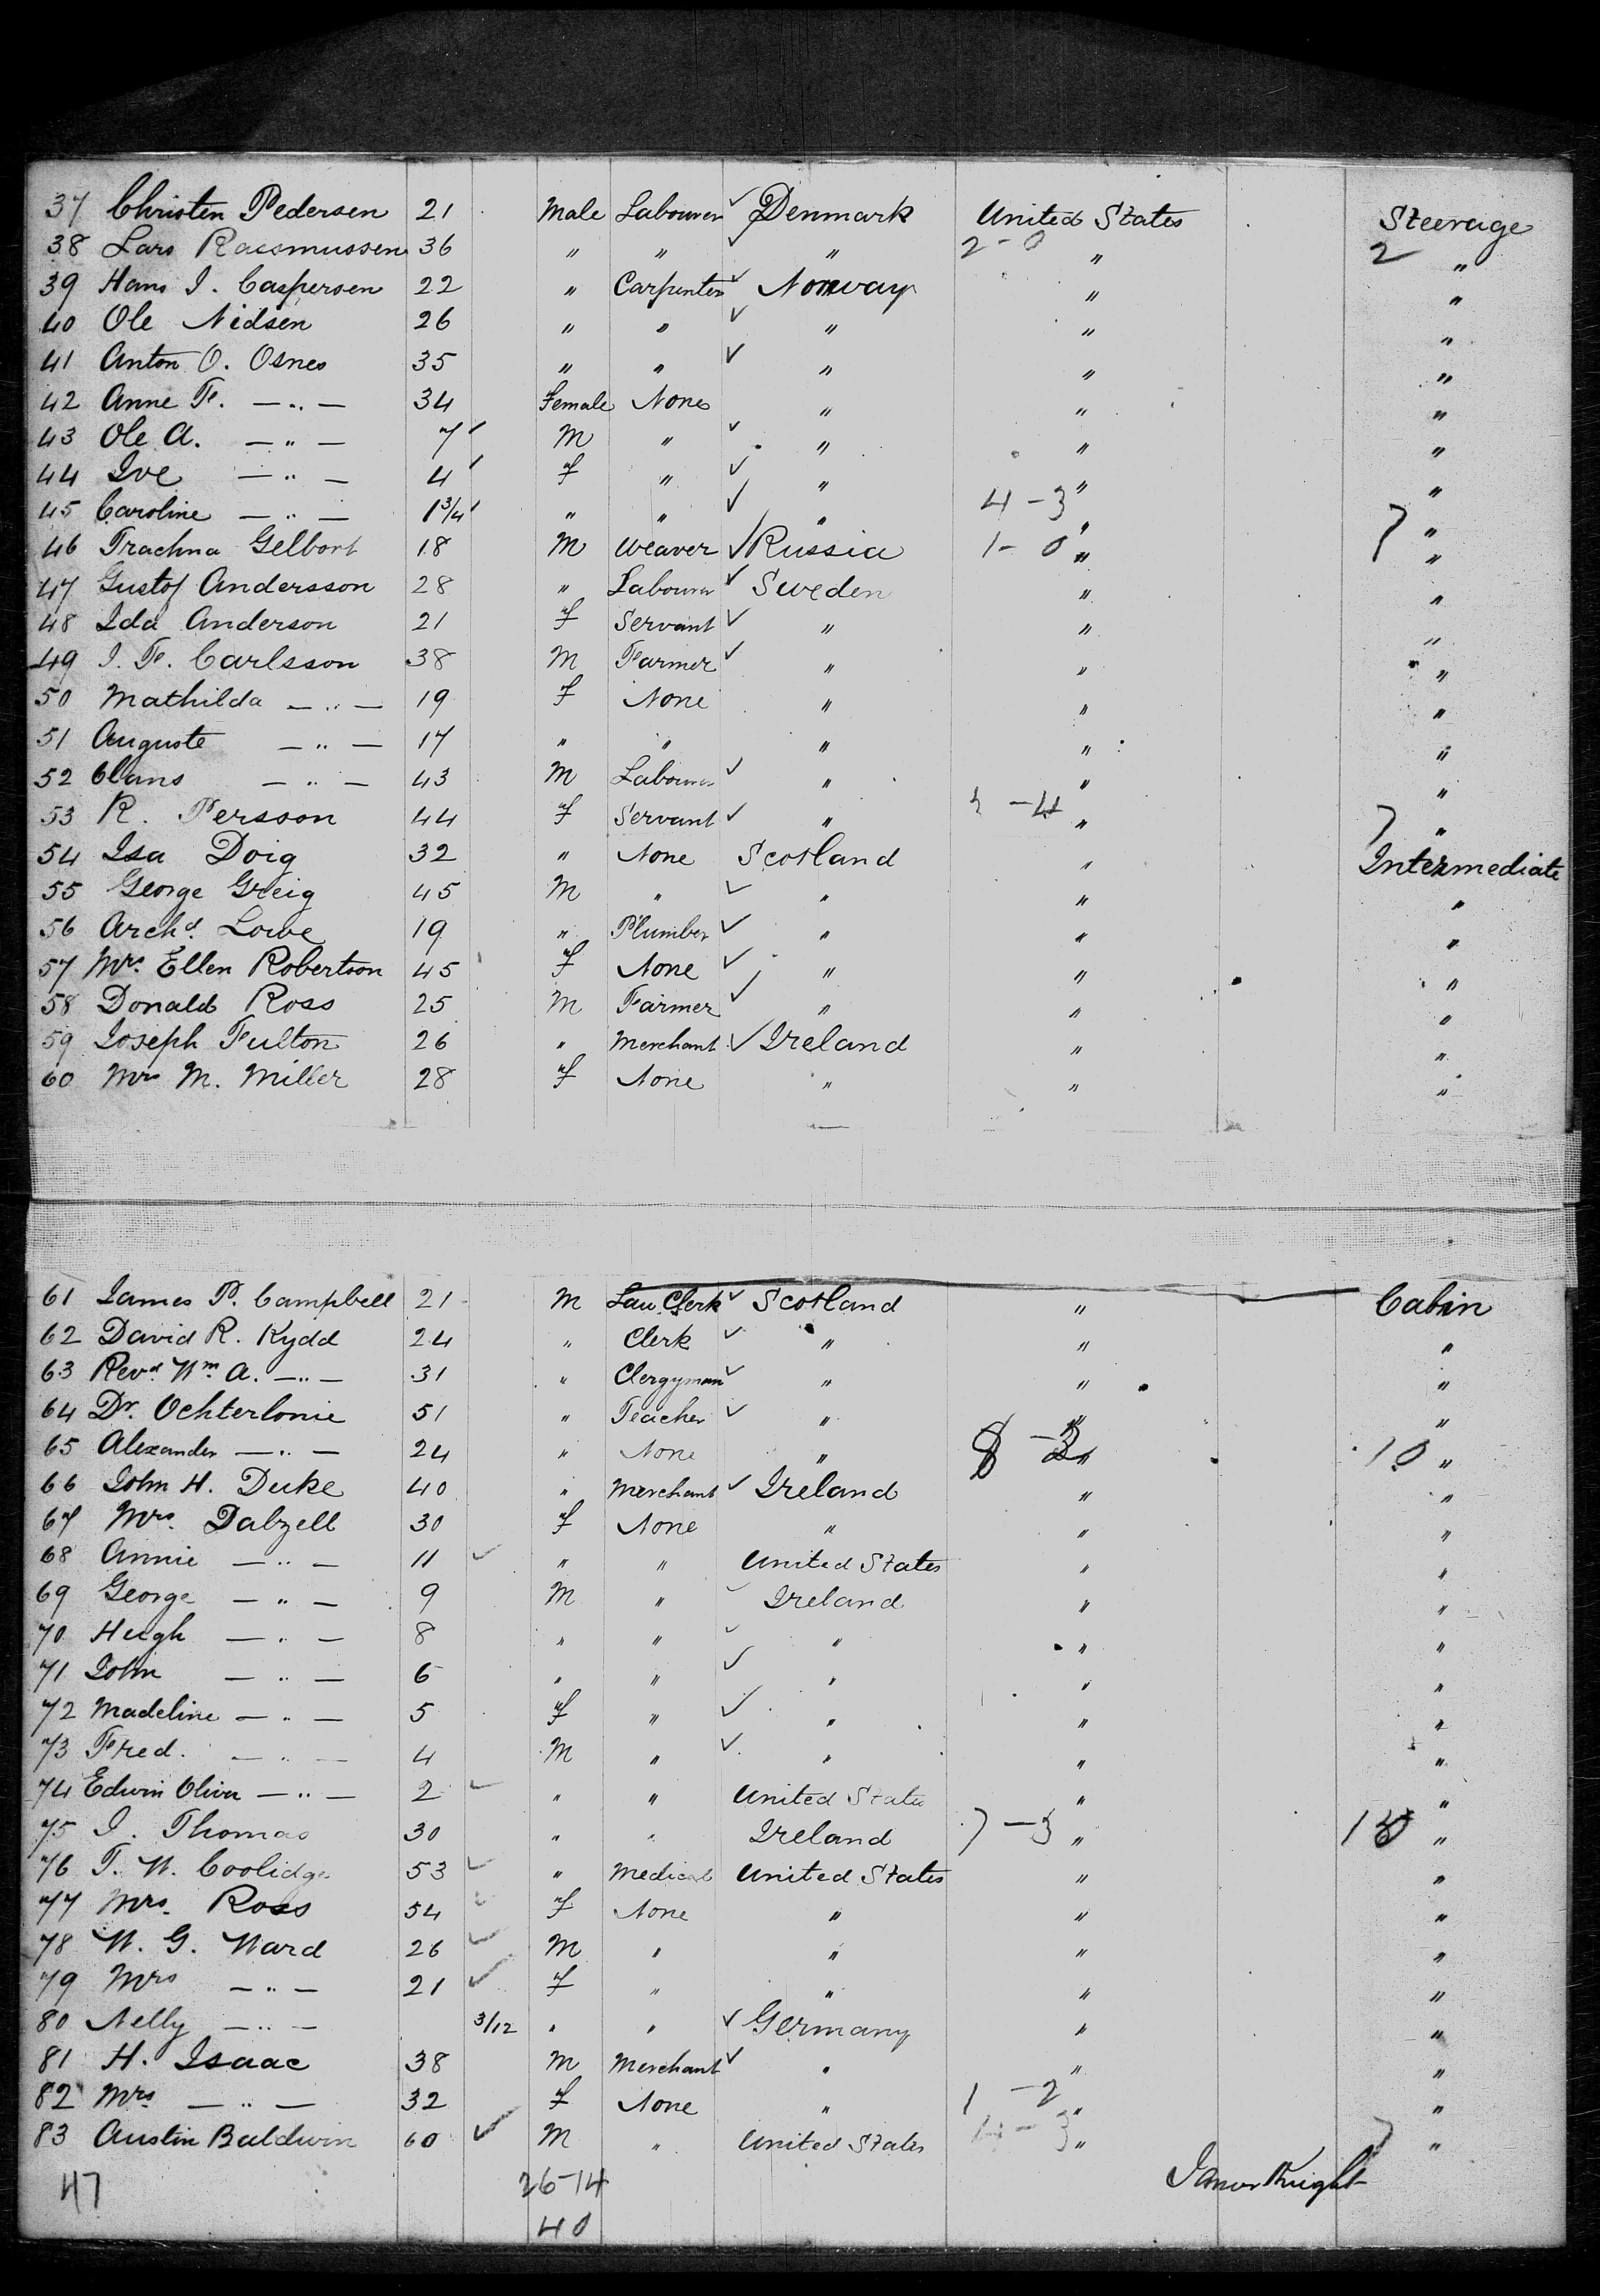 37 Christen Pedersen 21 Male Labourer ✓ Denmark United States Steerage
38 Lars Rassmussen 36 " " ✓ " 2-0 " 2 "
39 Hans J. Caspersen 22 " Carpenter ✓ Norway " "
40 Ole Nidsen 26 " " ✓ " " "
41 Anton O. Osnes 35 " " ✓ " " "
42 Anne F. —"— 34 Female None " " "
43 Ole A. —"— 7 M " ✓ " " "
44 Ive —"— 4 f " ✓ " " "
45 Caroline —"— 1 3/4 " " ✓ " 4-3 " 7 "
46 Trachna Gelbort 18 M Weaver ✓ Russia 1-0 " "
47 Gustof Andersson 28 " Labourer ✓ Sweden " "
48 Ida Anderson 21 f Servant ✓ " " "
49 J. F. Carlsson 38 M Farmer ✓ " " "
50 Mathilda —"— 19 f None " " "
51 Auguste —"— 17 " " " " "
52 Clans —"— 43 M Labourer ✓ " " "
53 R. Persson 44 f Servant ✓ " -4 " 7 "
54 Isa Doig 32 " None Scotland " Intermediate
55 George Greig 45 M " ✓ " " "
56 Archd. Lowe 19 " Plumber ✓ " " "
57 Mrs. Ellen Robertson 45 f None ✓ " " "
58 Donald Ross 25 M Farmer ✓ " " "
59 Joseph Fulton 26 " Merchant ✓ Ireland " "
60 Mrs M. Miller 28 f None " " "
61 James P. Campbell 21 M Law Clerk ✓ Scotland " Cabin
62 David R. Kydd 24 " Clerk ✓ " " "
63 Revd. Wm. A. —"— 31 " Clergyman ✓ " " "
64 Dr. Ochterlonie 51 " Teacher ✓ " " "
65 Alexander —"— 24 " None " 8-3 " 10 "
66 John H. Duke 40 " Merchant ✓ Ireland " "
67 Mrs. Dalzell 30 f None " " "
68 Annie —"— 11 ✓ " " United States " "
69 George —"— 9 M " ✓ Ireland " "
70 Hugh —"— 8 " " ✓ " " "
71 John —"— 6 " " ✓ " " "
72 Madeline —"— 5 f " ✓ " " "
73 Fred. —"— 4 M " ✓ " " "
74 Edwin Oliver —"— 2 ✓ " " United States " "
75 J. Thomas 30 " " Ireland 7-3 " "
76 T. W. Coolidge 53 ✓ " Medical United States " "
77 Mrs. Ross 54 ✓ f None " " "
78 W. G. Ward 26 ✓ M " " " "
79 Mrs —"— 21 ✓ f " " " "
80 Nelly —"— 3/12 " " ✓ Germany " "
81 H. Isaac 38 M Merchant ✓ " " "
82 Mrs —"— 32 f None " 1-2 " "
83 Austin Baldwin 60 ✓ M " United States -3 " 7 "
47 26-14 James Knight
40